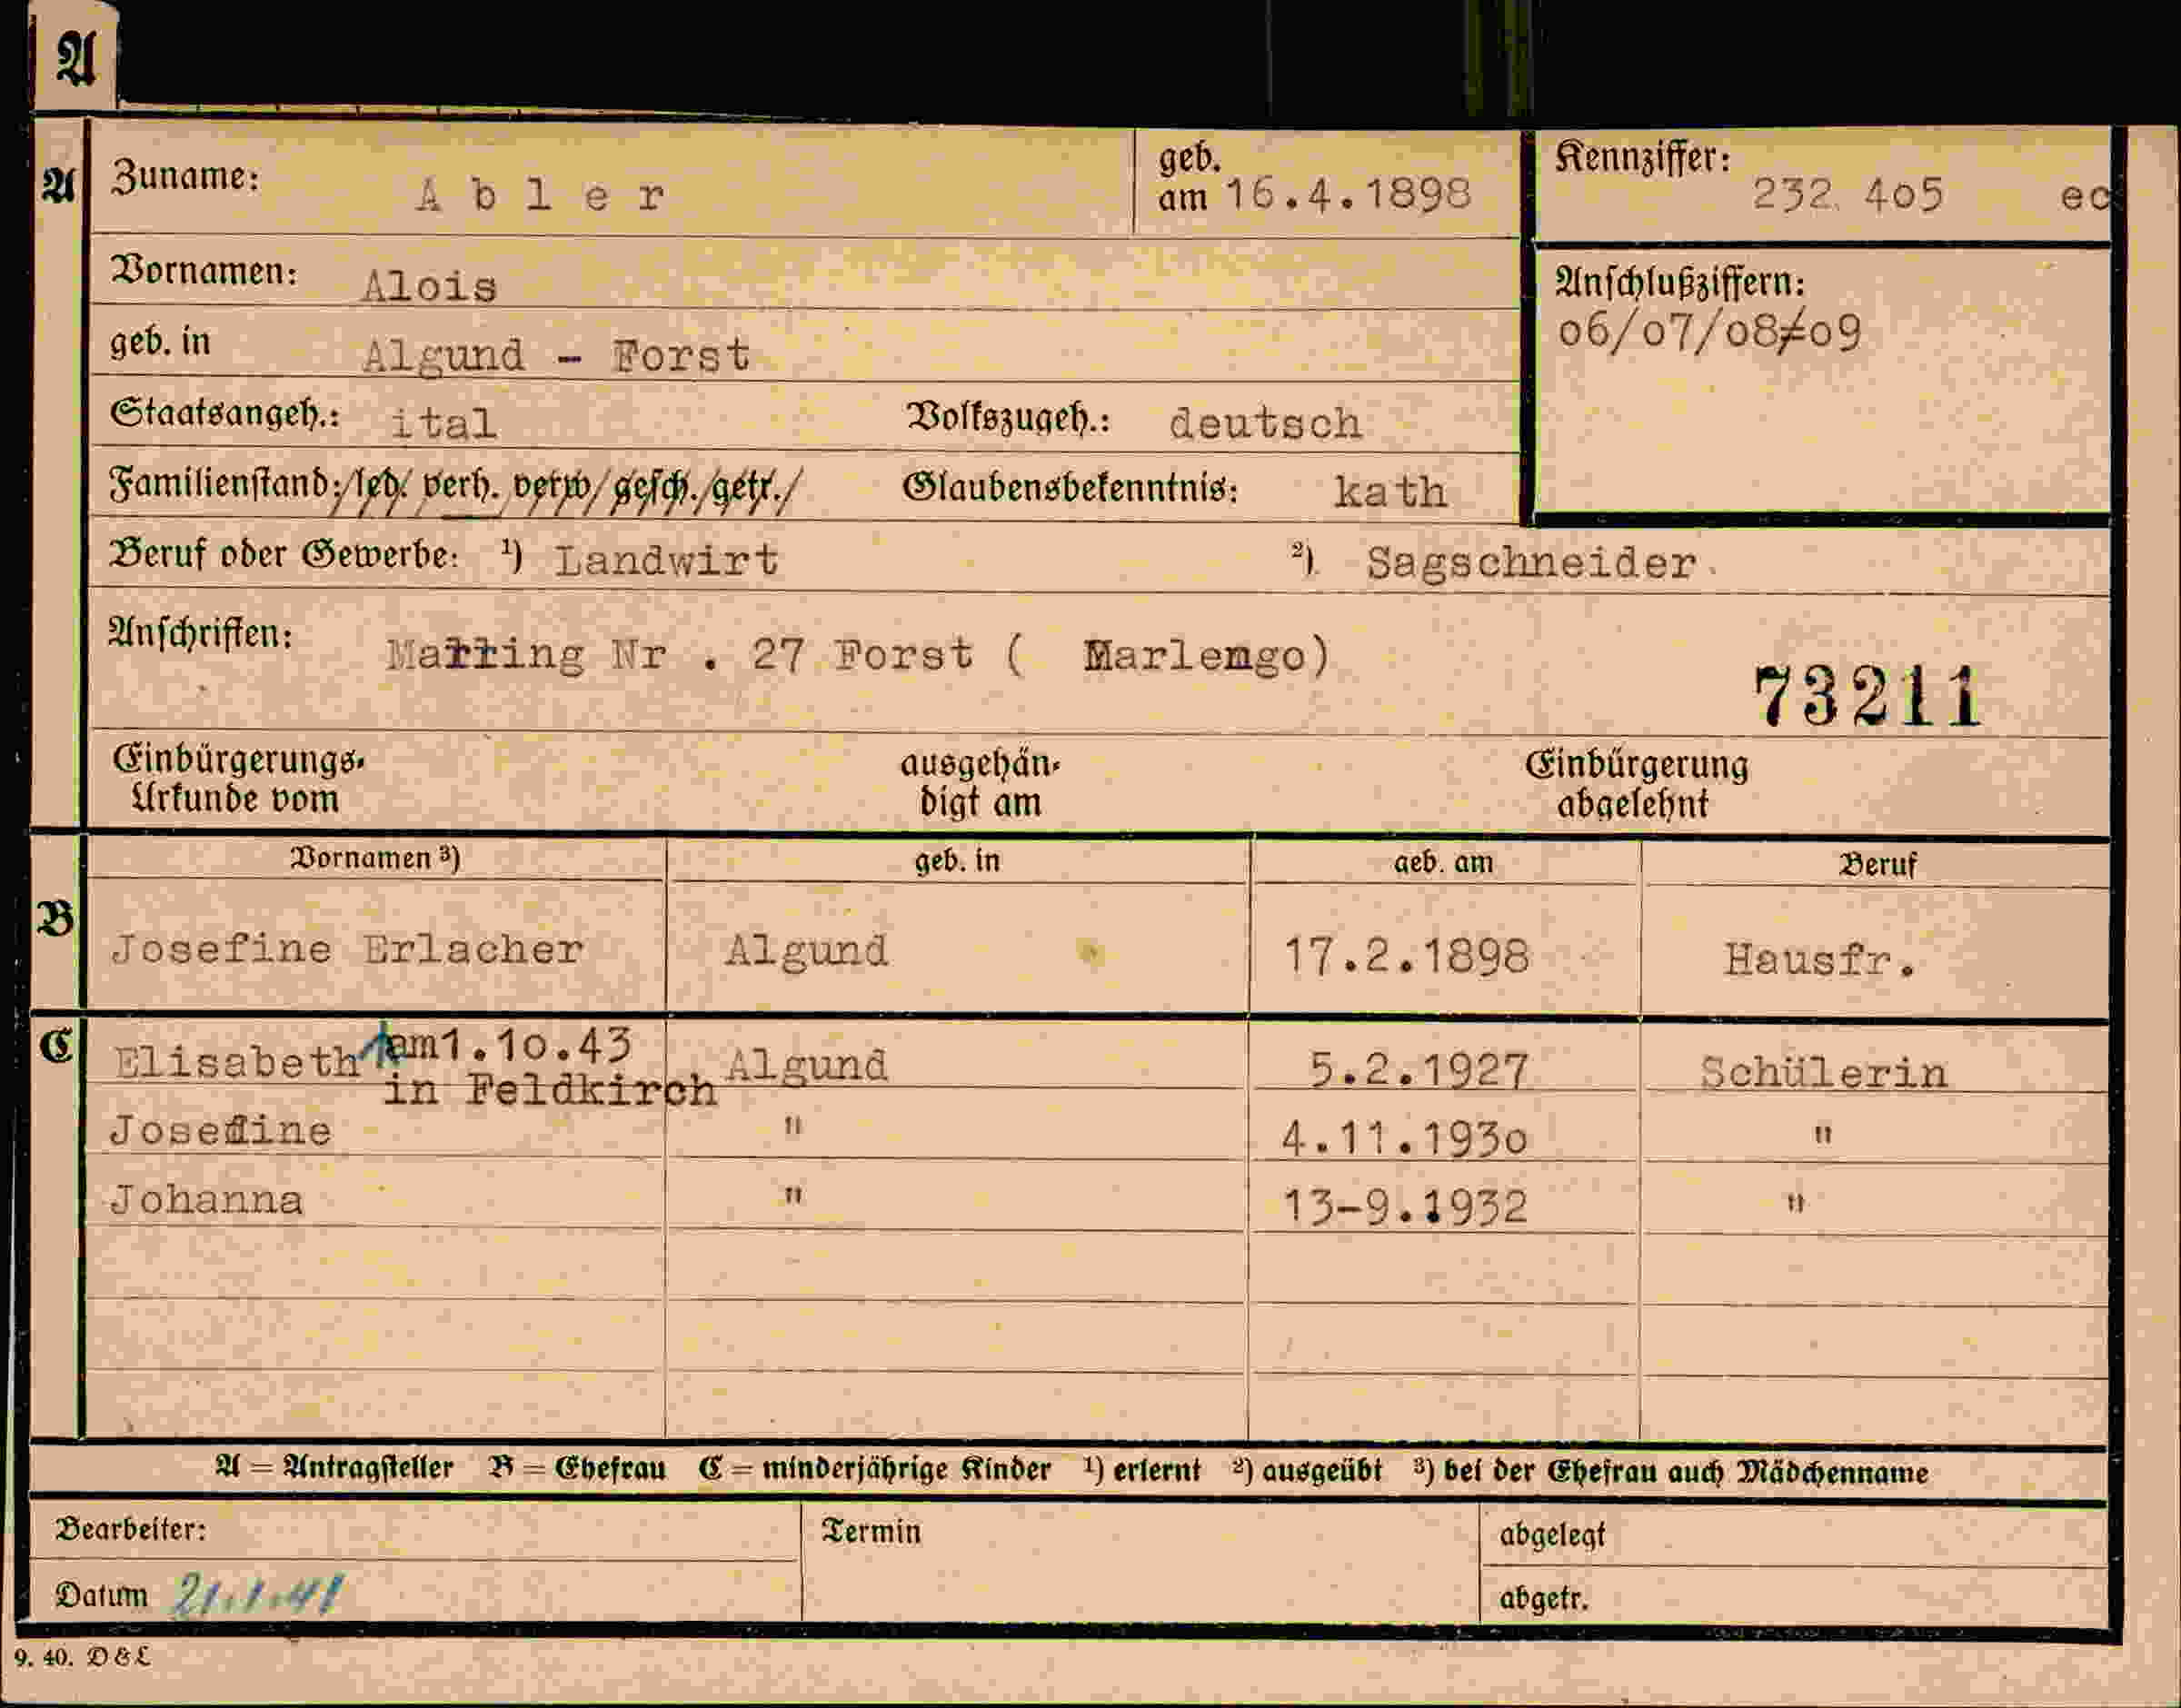 A
A Zuname: Abler geb. am 16.4.1898 Kennziffer: 232.405 ec
Vornamen: Alois Anschlußziffern:
geb. in Algund - Forst 06/07/08/09
Staatsangeh.: ital Volkszugeh.: deutsch
Familienstand: led. verh. verw. gesch. getr. Glaubensbekenntnis: kath
Beruf oder Gewerbe: ¹) Landwirt ²) Sagschneider.
Anschriften: Marling Nr . 27 Forst ( Marlengo)
73211
Einbürgerungs- ausgehän- Einbürgerung
Urkunde vom digt am abgelehnt
Vornamen ³) geb. in geb. am Beruf
B Josefine Erlacher Algund 17.2.1898 Hausfr.
C Elisabeth am 1.10.43 Algund 5.2.1927 Schülerin
in Feldkirch
Josefine " 4.11.1930 "
Johanna " 13-9.1932 "
A = Antragsteller B = Ehefrau C = minderjährige Kinder ¹) erlernt ²) ausgeübt ³) bei der Ehefrau auch Mädchenname
Bearbeiter: Termin abgelegt
Datum 21.1.41 abgetr.
9. 40. D & L